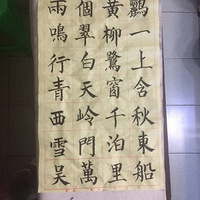 兩個黄鸝
鳴翠柳一
行白鷺上
青天窗含
西岭千秋
雪門泊東
吳萬里船